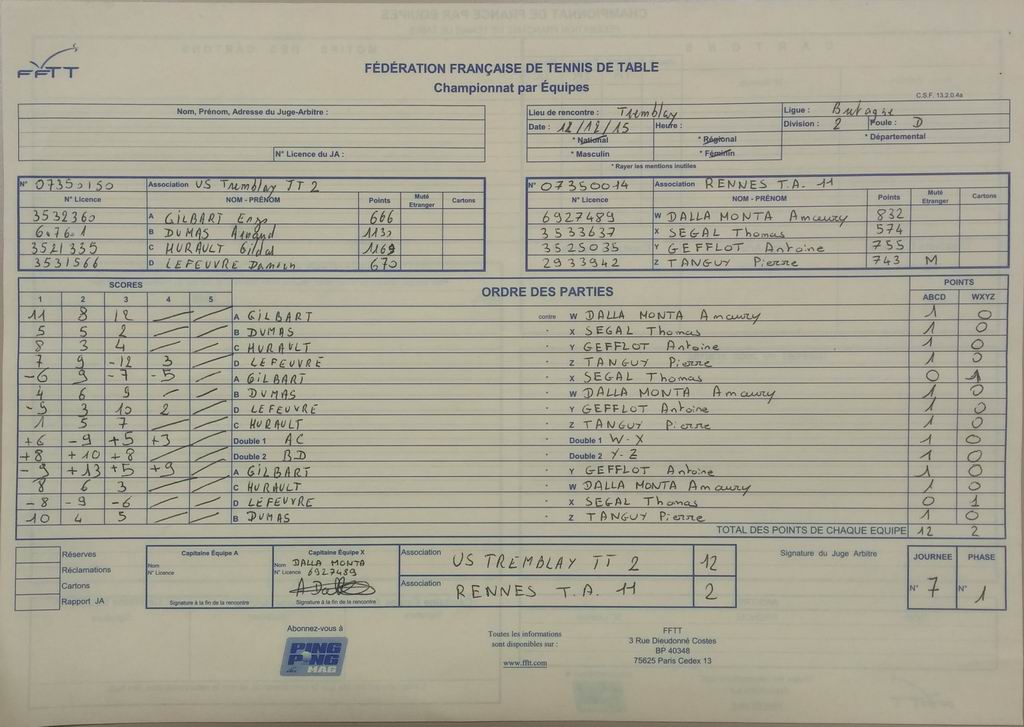 FFTT
FÉDÉRATION FRANÇAISE DE TENNIS DE TABLE
Championnat par Équipes
C.S.F. 13.2.0.4a
Nom, Prénom, Adresse du Juge-Arbitre :
N° Licence du JA :
Lieu de rencontre : Tremblay Ligue :
Date : 12/12/15 Heure : Division : 2 Poule : D
* National * Régional * Départemental
* Masculin * Féminin
* Rayer les mentions inutiles
N° 07350150 Association US Tremblay TT 2
N° Licence NOM - PRÉNOM Points Muté Etranger Cartons
3532360 A GILBART Enzo 666
B DUMAS Arnaud 1130
3521335 C HURAULT Gildas 1169
3531566 D LEFEUVRE Damien 670
N° 07350014 Association RENNES T.A. 11
N° Licence NOM - PRÉNOM Points Muté Etranger Cartons
6927489 W DALLA MONTA Amaury 832
3533637 X SEGAL Thomas 574
3525035 Y GEFFLOT Antoine 755
2933942 Z TANGUY Pierre 743 M
SCORES ORDRE DES PARTIES POINTS
1 2 3 4 5 ABCD WXYZ
11 8 12 A GILBART contre W DALLA MONTA Amaury 1 0
5 5 2 B DUMAS X SEGAL Thomas 1 0
8 3 4 C HURAULT Y GEFFLOT Antoine 1 0
7 9 -12 3 D LEFEUVRE Z TANGUY Pierre 1 0
-6 9 -7 -5 A GILBART X SEGAL Thomas 0 1
4 6 9 B DUMAS W DALLA MONTA Amaury 1 0
-9 3 10 2 D LEFEUVRE Y GEFFLOT Antoine 1 0
1 5 7 C HURAULT Z TANGUY Pierre 1 0
+6 -9 +5 +3 Double 1 AC Double 1 W-X 1 0
+8 +10 +8 Double 2 B.D Double 2 Y-Z 1 0
-9 +13 +5 +9 A GILBART Y GEFFLOT Antoine 1 0
8 6 3 C HURAULT W DALLA MONTA Amaury 1 0
-8 -9 -6 D LEFEUVRE X SEGAL Thomas 0 1
10 4 5 B DUMAS Z TANGUY Pierre 1 0
TOTAL DES POINTS DE CHAQUE EQUIPE 12 2
Réserves
Réclamations
Cartons
Rapport JA
Capitaine Équipe A
Nom
N° Licence
Signature à la fin de la rencontre
Capitaine Équipe X
Nom DALLA MONTA
N° Licence 6927489
Signature à la fin de la rencontre
Association US TREMBLAY TT 2 12
Association RENNES T.A. 11 2
Signature du Juge Arbitre
JOURNEE PHASE
N° 7 N° 1
Abonnez-vous à
PING PONG MAG
Toutes les informations
sont disponibles sur :
www.fftt.com
FFTT
3 Rue Dieudonné Costes
BP 40348
75625 Paris Cedex 13